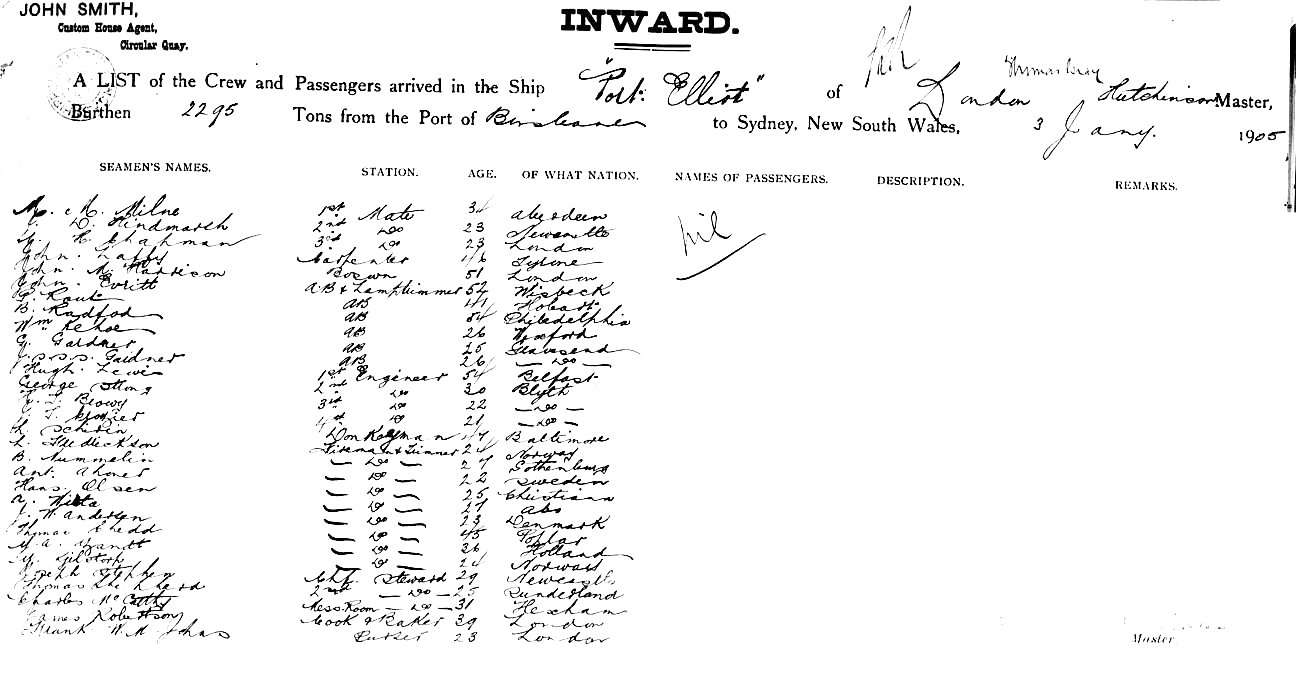 JOHN SMITH,
Custom House Agent,
Circular Quay.
INWARD.
A LIST of the Crew and Passengers arrived in the Ship "Port Elliot" of London Thomas Gray Hutchinson Master,
Burthen 2295 Tons from the Port of Brisbane to Sydney, New South Wales, 3 Jany. 1905
SEAMEN'S NAMES. STATION. AGE. OF WHAT NATION. NAMES OF PASSENGERS. DESCRIPTION. REMARKS.
M. M. Milne 1st Mate 34 Aberdeen nil
D. Hindmarsh 2nd Do 23 Newcastle
H. Chapman 3rd Do 23 London
John Carpenter Tyrone
John M. Harrison Boswn 51 London
John Everitt AB & Lamptrimmer 52 Wisbeck
AB 41 Hobart
B. Radford AB 54 Philadelphia
Wm Kehoe AB 26 Wexford
G. Gardner AB 25 Gravesend
Gardner AB 26 — Do —
Hugh Lewis 1st Engineer 54 Belfast
George Strong 2nd Do 30 Blyth
3rd Do 22 — Do —
Do 21 — Do —
Donkeyman 47 Baltimore
Fredickson Fireman & Trimmer 24 Norway
B. Nummelin — Do — 27 Gothenburg
Ant. — Do — 22 Sweden
Hans Olsen — Do — 25 Christiana
A. — Do — 27 Abo
W. Andersen — Do — 23 Denmark
Thomas — Do — 45 Poplar
Brandt — Do — 26 Holland
— Do — 24 Norway
Joseph Stephen Chf. Steward 29 Newcastle
Thomas 2nd — Do — 25 Sunderland
Charles McCarthy Mess-Room — Do — 31 Hexham
James Robertson Cook & Baker 39 London
Frank W. M. Johns Purser 23 London
Master